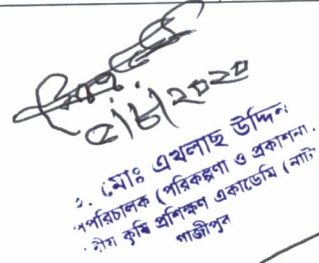 ৫|৮|২০২০
মোঃ এখলাছ উদ্দিন
পপরিচালক (পরিকল্পনা ও প্রকাশনা
কৃষি প্রশিক্ষণ একাডেমি (নাটা
গাজীপুর